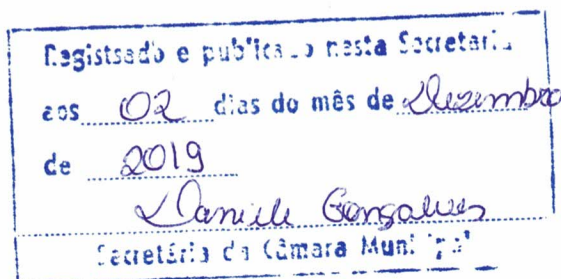 Registsado e publicado nesta Secretaria
aos 02 dias do mês de Dezembro
de 2019
Daniele Gonçalves
Secretária da Câmara Municipal